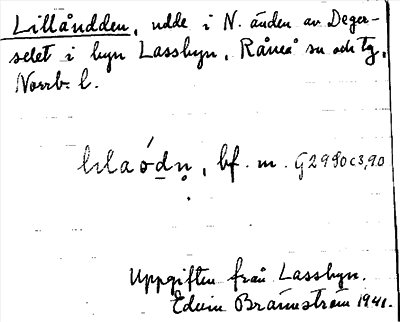 Lillåudden, udde i N. änden av Deger-
selet i byn Lassbyn, Råneå sn och tg,
Norrb. l.
bf. m. G2990c3,90
Uppgiften från Lassbyn.
Edvin Brännström 1941.